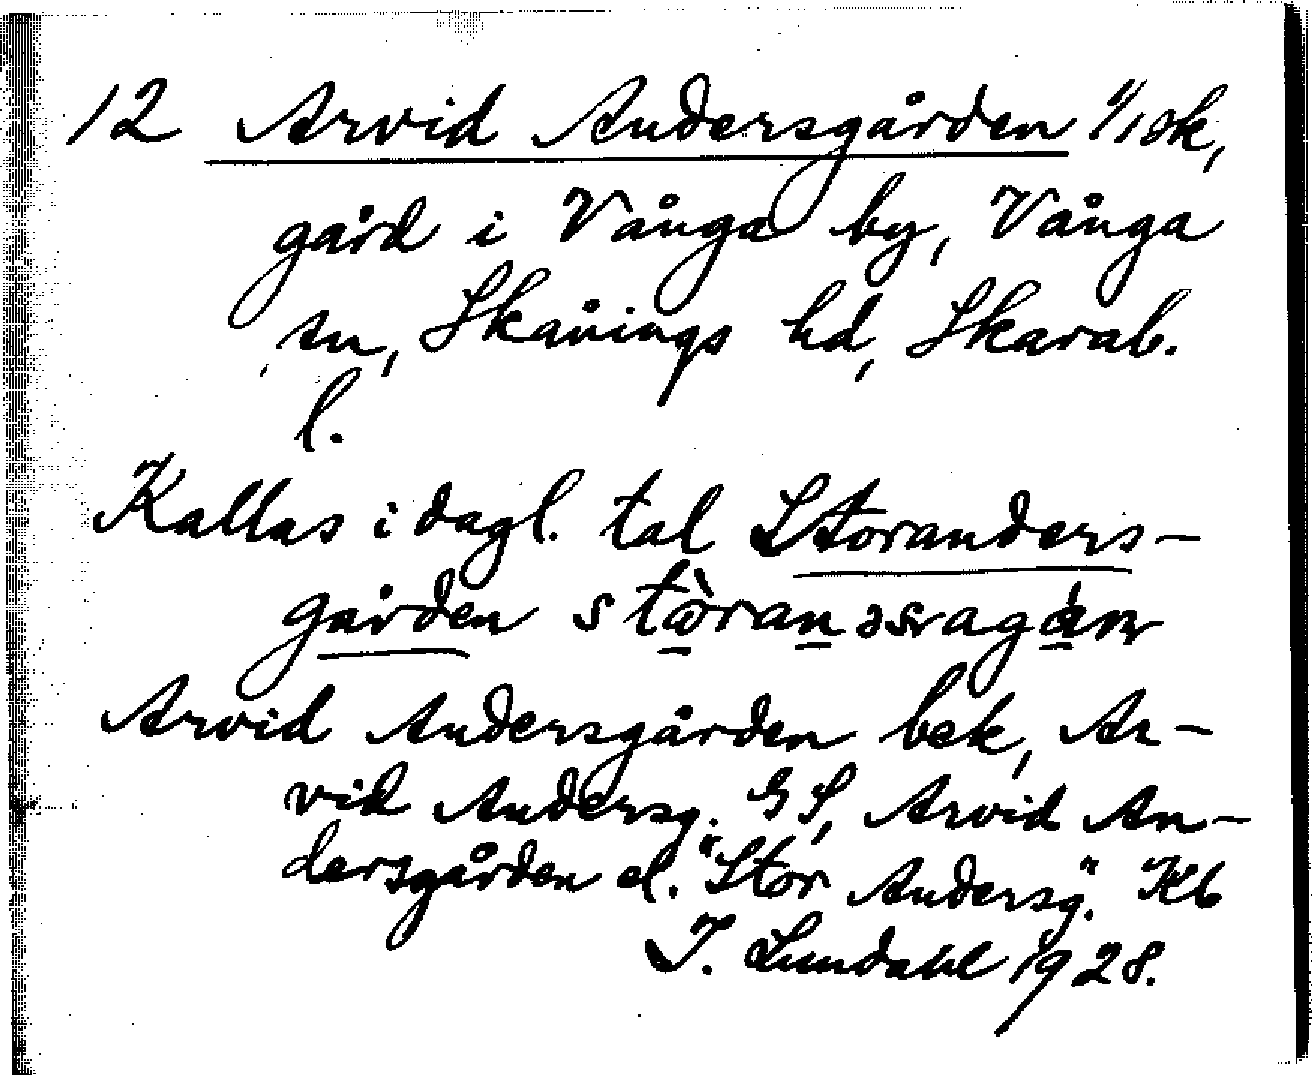 12 Arvid Andersgården 1/1 sk,
gård i Vånga by, Vånga
sn, Skånings hd, Skarab.
l.
Kallas i dagl. tal Storanders-
gården
Arvid Andersgården bek, Ar-
vid Andersg. GS, Arvid An-
dersgården el. "Stor Andersg." Kb
I. Lundahl 1928.